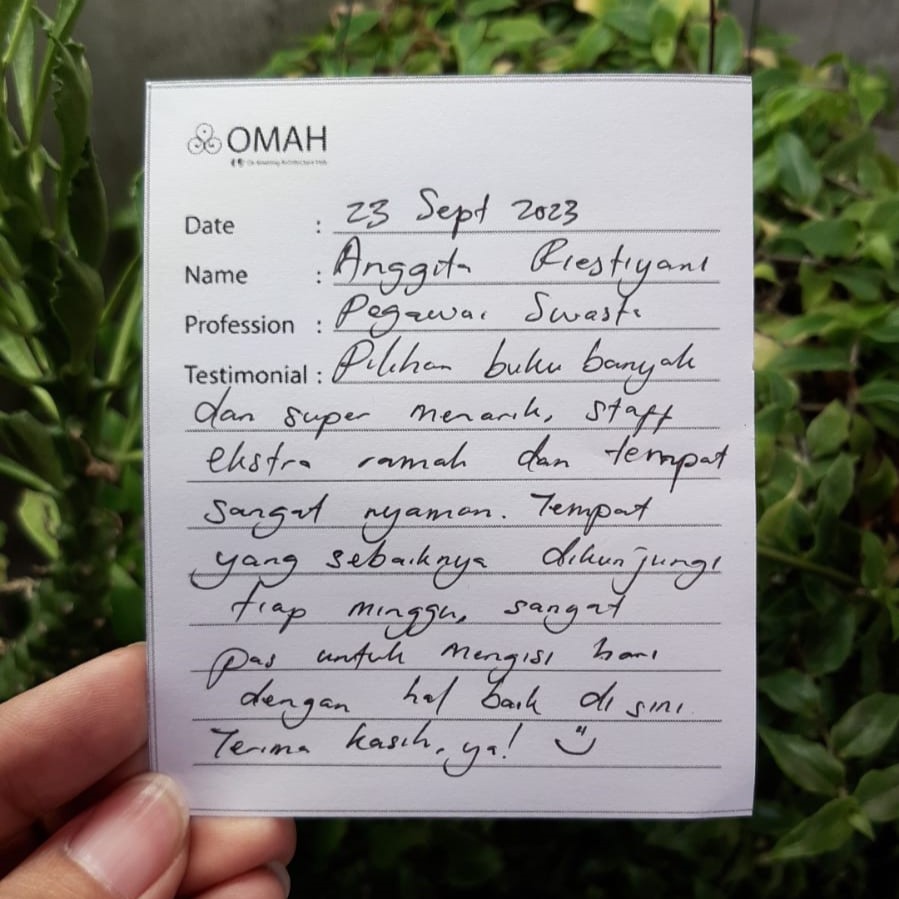 OMAH
Date : 23 Sept 2023
Name : Anggita Riestiyani
Profession : Pegawai Swasta
Testimonial : Pilihan buku banyak
dan super menarik, staff
ekstra ramah dan tempat
sangat nyaman. Tempat
yang sebaiknya dikunjungi
tiap minggu, sangat
pas untuk mengisi hari
dengan hal baik di sini.
Terima kasih, ya!